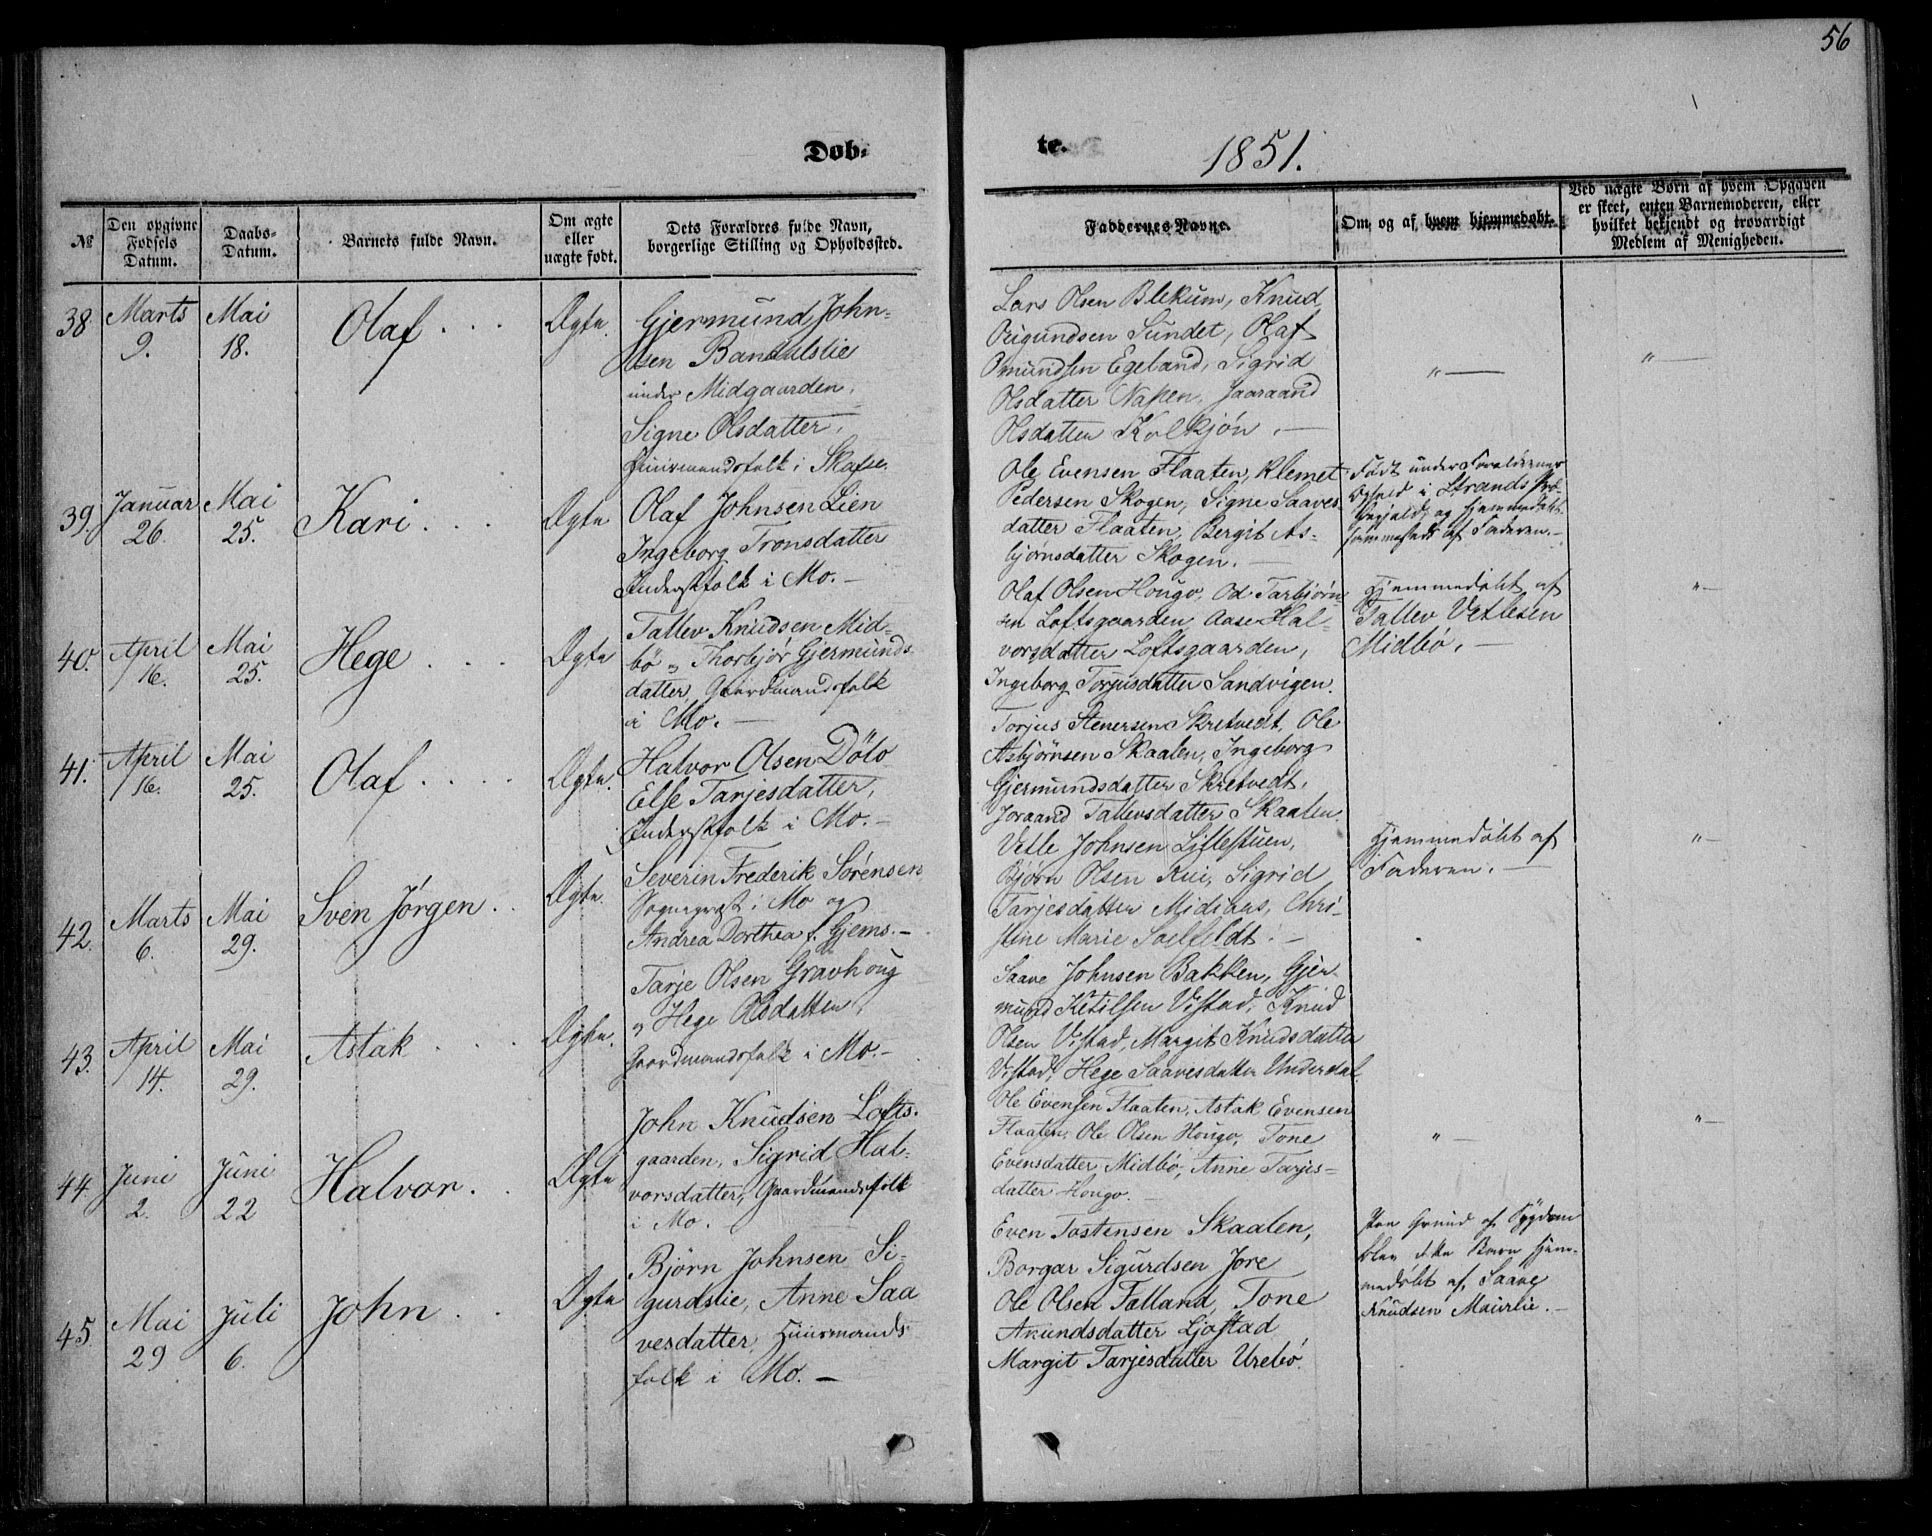 56
Døb-
te.
1851.
№
Den opgivne
Fødsels
Datum.
Daabs-
Datum.
Barnets fulde Navn.
Om ægte
eller
uægte født.
Dets Forældres fulde Navn,
borgerlige Stilling og Opholdssted.
Faddernes Navne.
Om og af hvem hjemmedøbt.
Ved uægte Børn af hvem Opgaven
er skeet, enten Barnemoderen, eller
hvilket bekjendt og troværdigt
Medlem af Menigheden.
38
Marts
9.
Mai
18.
Olaf
Ægte.
Gjermund John-
sen
under Midgaarden,
Signe Olsdatter,
Huusmandsfolk i Skafse.
Lars Olsen Blekum, Knud
Sundet, Olaf
Omundsen Egeland, Sigrid
Olsdatter Napen, Jaaraand
Olsdatter Kolkjøn. —
" —
" —
39.
Januar
26.
Mai
25.
Kari
Ægte
Olaf Johnsen Lien
Ingeborg Tronsdatter
Inderstfolk i Mo. —
Ole Evensen Flaaten, Klemet
Pedersen Skogen, Signe Saaves-
datter Flaaten, Bergit As-
bjørnsdatter Skogen. —
Født under Forældrenes
Ophold i Strands Præ-
stegjeld, og hjemmedøbt
sammesteds af Faderen. —
40.
April
16.
Mai
25.
Hege
Ægte
Tallev Knudsen Mid-
bö og Thorbjör Gjermunds-
datter, Gaardmandsfolk
i Mo. —
Olaf Olsen Hougo, Od Tarbjørn-
sen Loftsgaarden, Aase Hal-
vorsdatter Loftsgaarden,
Ingeborg Torjusdatter Sandvigen.
Hjemmedøbt af
Tallev Vetlesen
Midbö. —
" —
41.
April
16.
Mai
25.
Olaf
Ægte.
Halvor Olsen Dölo
Else Tarjesdatter,
Inderstfolk i Mo. —
Torjus Stenersen Skretvedt, Ole
Asbjørnsen Skaalen, Ingeborg
Gjermundsdatter Skretvedt,
Joraand Tallevsdatter Skaalen.
42.
Marts
6.
Mai
29.
Sven Jørgen
Ægte.
Severin Frederik Sørensen
Sognepræst i Mo og
Andrea Dorthea f. Gjems. —
Vetle Johnsen Littlestuen,
Bjørn Olsen Rui, Sigrid
Tarjesdatter Midiaas, Chri-
stine Marie Saelfeldt. —
Hjemmedøbt af
Faderen. —
" —
43.
April
14.
Mai
29.
Astak
Ægte.
Tarje Olsen Gravhoug
og Hege Olsdatter,
Gaardmandsfolk i Mo. —
Saave Johnsen Bakken, Gjer-
mund Ketilsen Vistad, Knud
Olsen Vistad, Margit Knudsdatter
Vistad, Hege Saavesdatter Underdal.
44.
Juni
2.
Juni
22
Halvor
Ægte
John Knudsen Lofts-
gaarden, Sigrid Hal-
vorsdatter, Gaardmandsfolk
i Mo.
Ole Evensen Flaaten, Astak Evensen
Flaaten, Ole Olsen Hougo, Tone
Evensdatter Midbö, Anne Tarjes-
datter Hougo. —
" —
" —
45.
Mai
29
Juli
6.
John
Ægte
Bjørn Johnsen Si-
gurdslie, Anne Saa
vesdatter, Huusmands
folk i Mo. —
Even Tostensen Skaalen,
Borgar Sigurdsen Jore
Ole Olsen Talland, Tone
Amundsdatter Ljostad
Margit Tarjesdatter Urebö.
Paa Grund af Sygdom
blev dette Barn hjem-
medøbt af Saave
Knudsen Maierlie. —